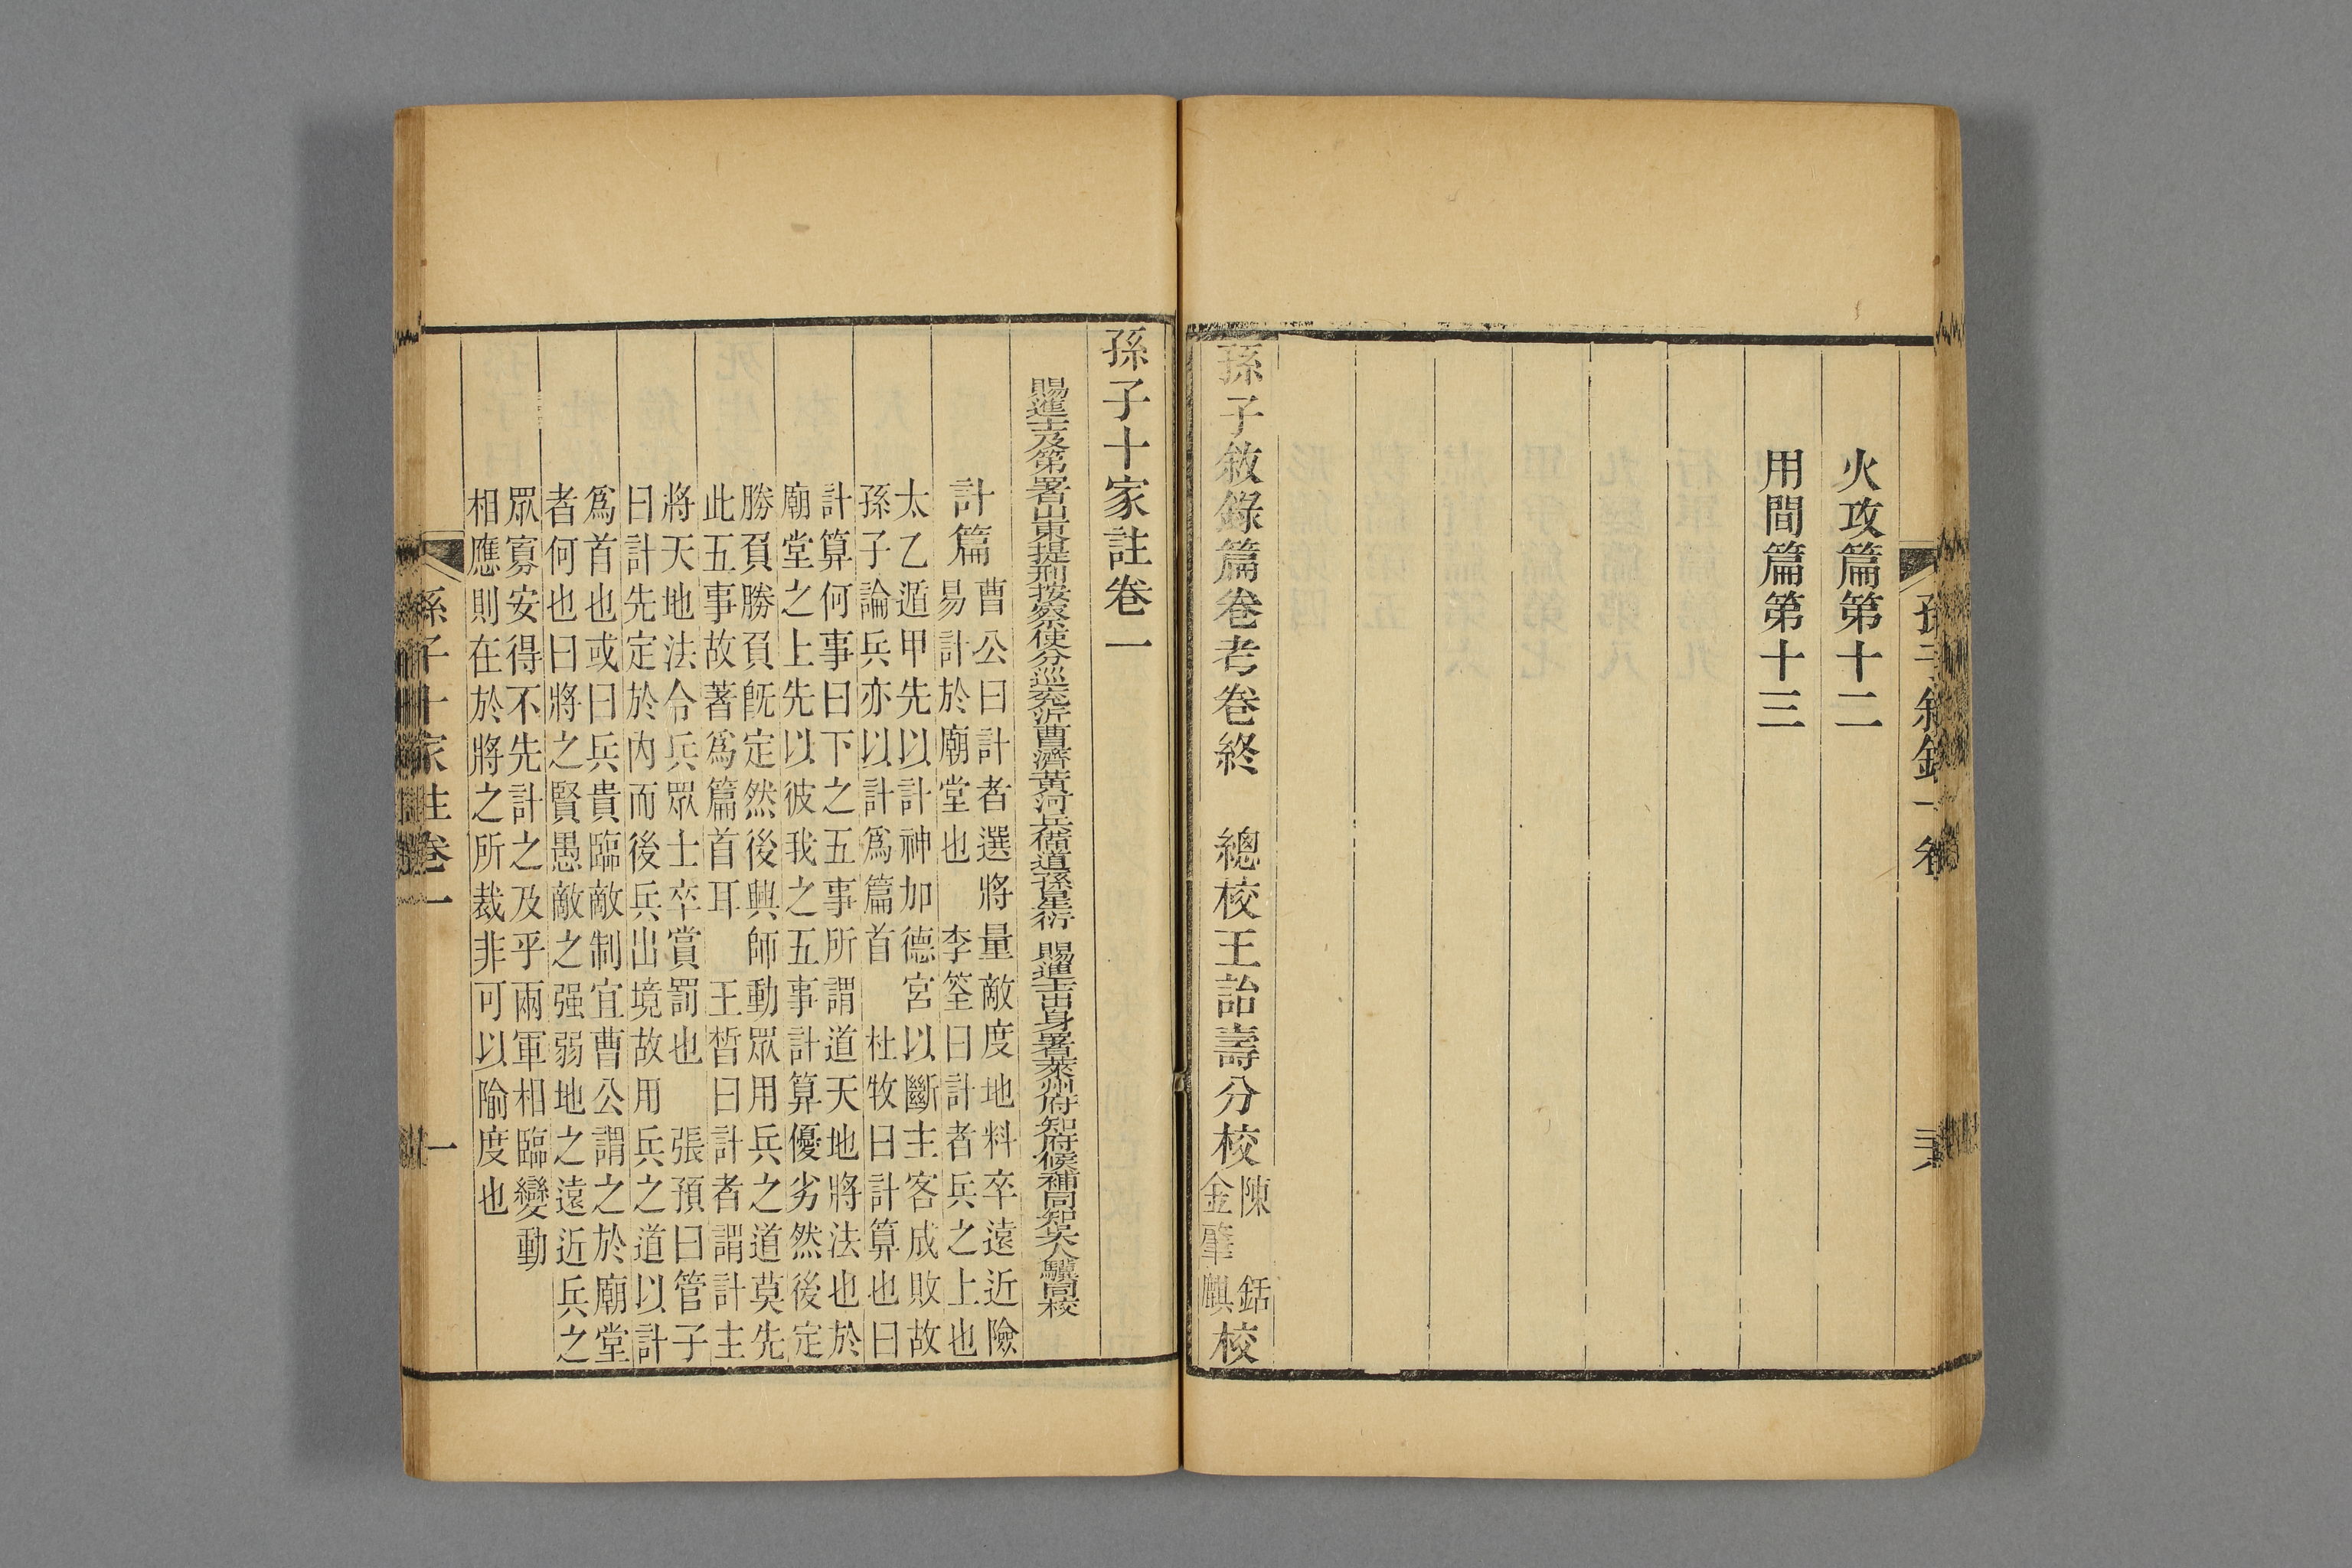 火攻篇第十二
用間篇第十三
孫子敘錄篇卷考卷終 總校王詒壽分校陳銛金肇麒校
孫子十家註卷一
賜進士及第署山東提刑按察使分巡兗沂曹濟黃河兵備道孫星衍 賜進士出身署萊州府知府候補同知吳人驥同校
計篇
曹公曰計者選將量敵度地料卒遠近險
易計於廟堂也 李筌曰計者兵之上也
太乙遁甲先以計神加德宮以斷主客成敗故
孫子論兵亦以計爲篇首 杜牧曰計算也曰
計算何事曰下之五事所謂道天地將法也於
廟堂之上先以彼我之五事計算優劣然後定
勝負勝負旣定然後興師動眾用兵之道莫先
此五事故著爲篇首耳 王晳曰計者謂計主
將天地法令兵眾士卒賞罰也 張預曰管子
曰計先定於內而後兵出境故用兵之道以計
爲首也或曰兵貴臨敵制宜曹公謂之於廟堂
者何也曰將之賢愚敵之强弱地之遠近兵之
眾寡安得不先計之及乎兩軍相臨變動
相應則在於將之所裁非可以隃度也
孫子十家註卷一
一